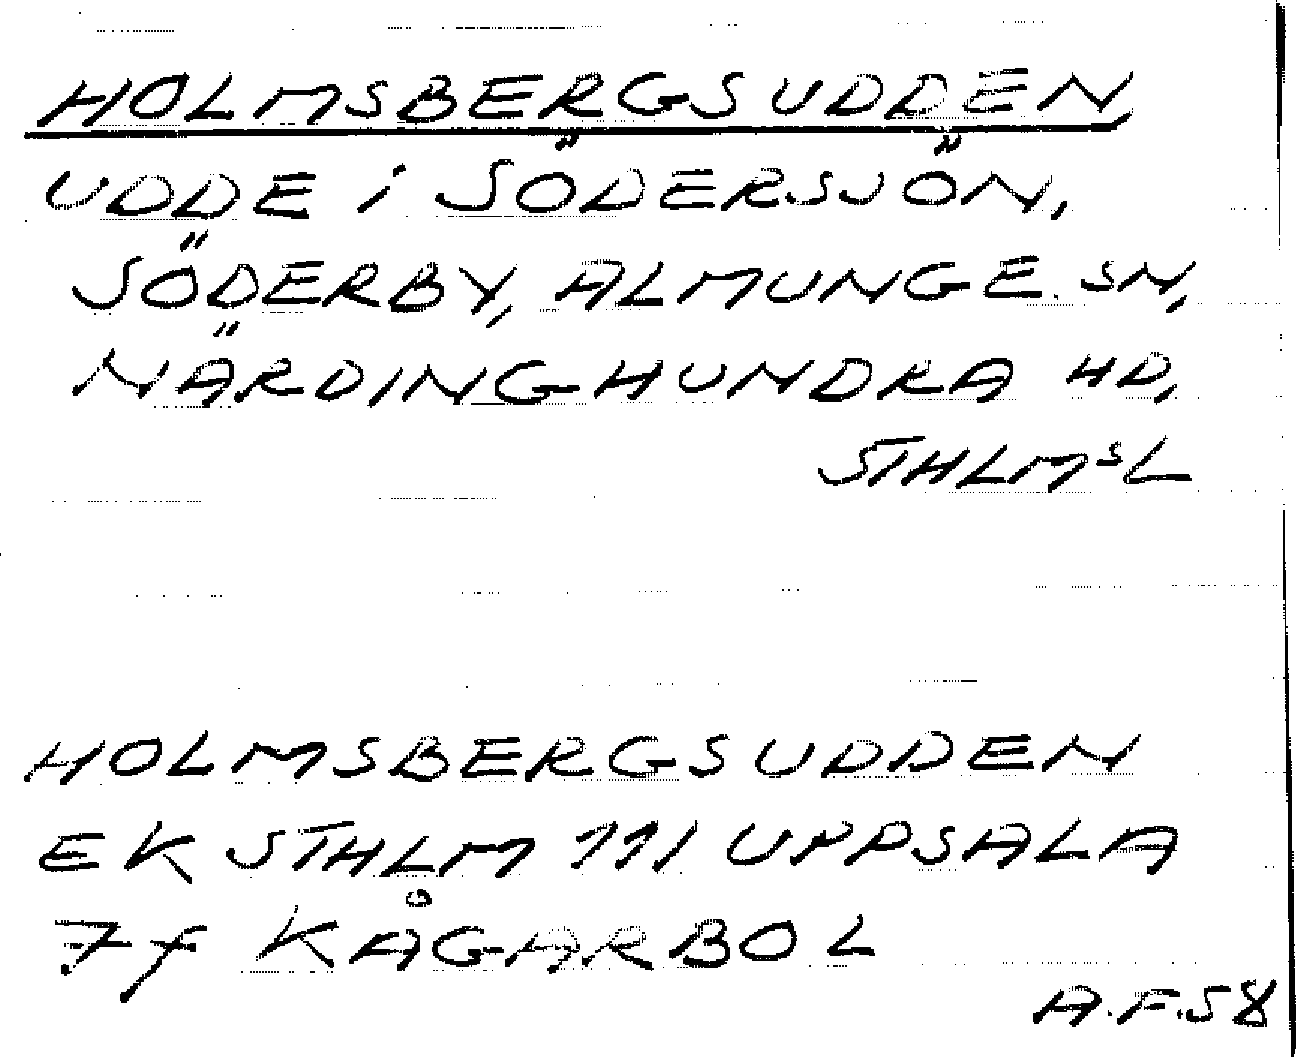 HOLMSBERGSUDDEN,
UDDE i SÖDERSJÖN,
SÖDERBY, ALMUNGE SN,
NÄRDINGHUNDRA HD,
STHLMSL
HOLMSBERGSUDDEN
EK STHLM 111 UPPSALA
7f KÅGARBOL
A.F.58